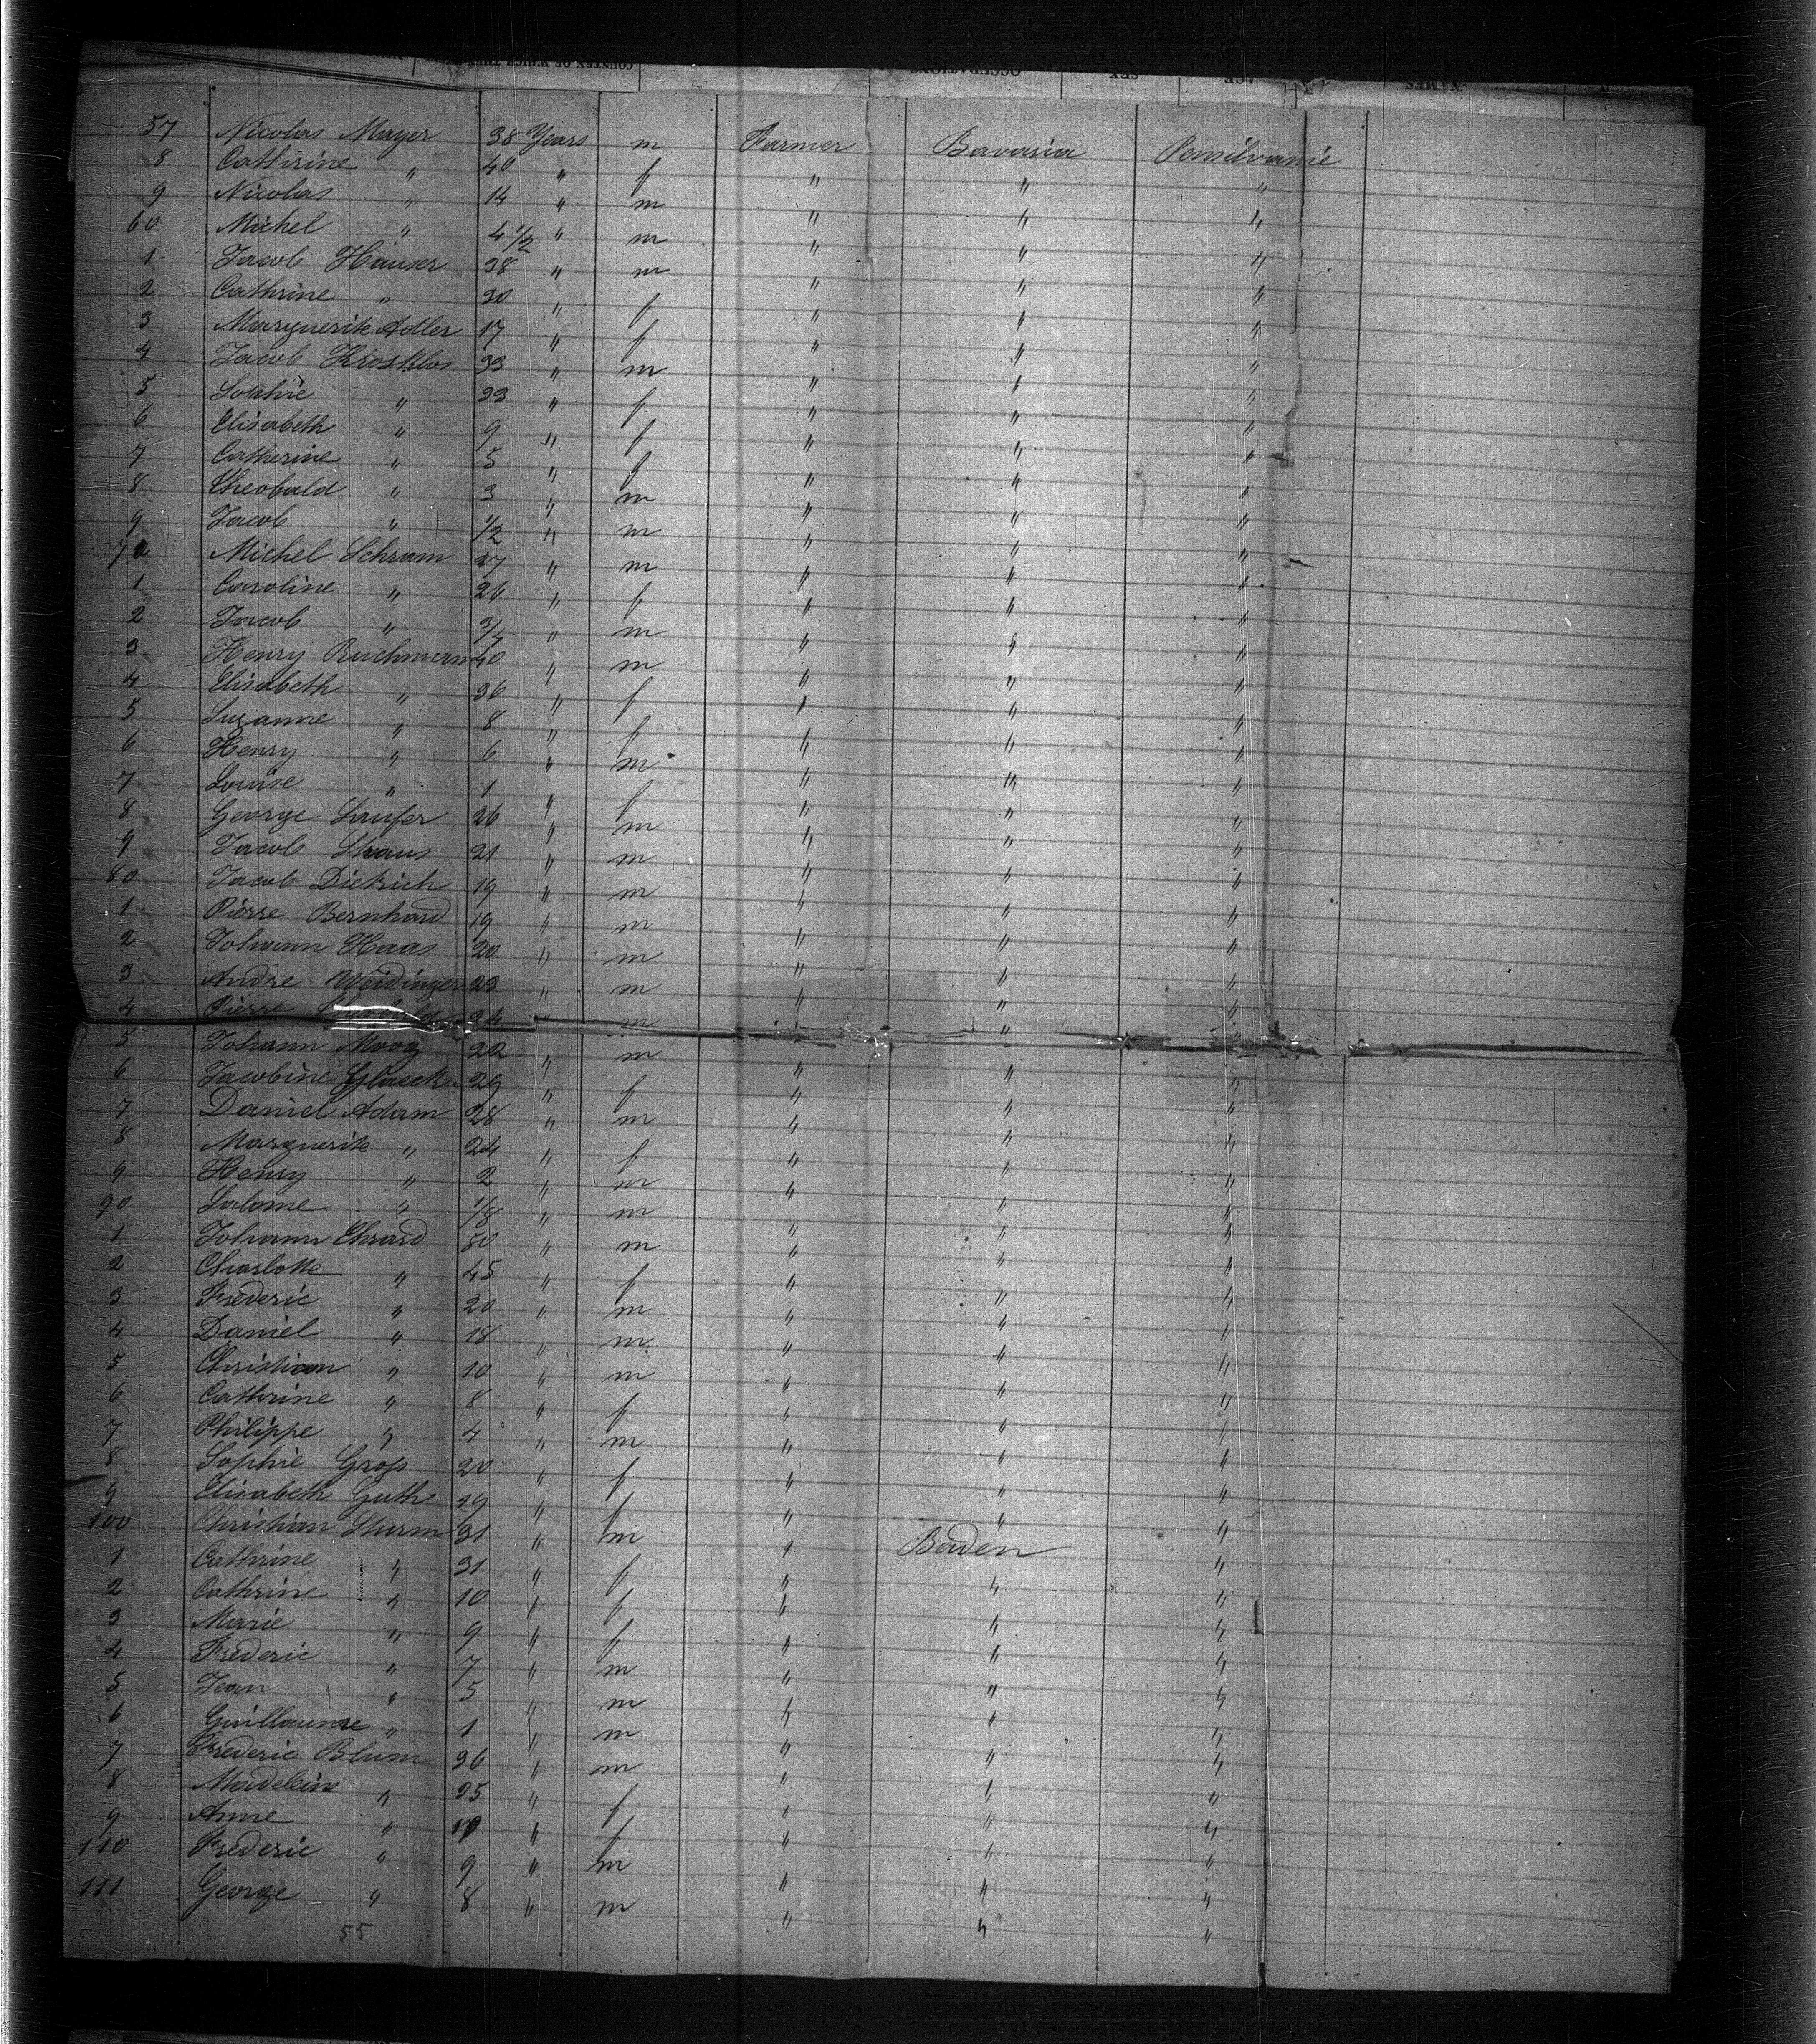 COUNTRY OF WHICH THE OCCUPATIONS SEX AGE NAMES
57 Nicolas Mayer 38 Years m Farmer Bavaria Pensilvanie
8 Cathirine " 40 " f " " "
9 Nicolas " 14 " m " " "
60 Michel " 4 1/2 " m " " "
1 Jacob Hauser 38 " m " " "
2 Cathrine " 30 " f " " "
3 Marguerite Adler 17 " f " " "
4 Jacob 33 " m " " "
5 Sophie " 33 " f " " "
6 Elisabeth " 9 " f " " "
7 Catherine " 5 " f " " "
8 Theobald " 3 " m " " "
9 Jacob " 1/2 " m " " "
70 Michel Schram 27 " m " " "
1 Caroline " 26 " f " " "
2 Jacob " 3/4 " m " " "
3 Henry Ruchmann 40 " m " " "
4 Elisabeth " 36 " f " " "
5 Suzanne " 8 " f " " "
6 Henry " 6 " m " " "
7 Louise " 1 " f " " "
8 George Laufer 26 " m " " "
9 Jacob Straus 21 " m " " "
80 Jacob Dietrich 19 " m " " "
1 Pierre Bernhard 19 " m " " "
2 Johann Haas 20 " m " " "
3 Andre Weidinger 23 " m " " "
4 Pierre 24 " m " " "
5 Johann Moog 22 " m " " "
6 Jacobine Glueck 29 " f " " "
7 Daniel Adam 28 " m " " "
8 Marguerite " 24 " f " " "
9 Henry " 2 " m " " "
90 Salome " 1/8 " m " " "
1 Johann Ehrard 50 " m " " "
2 Charlotte " 45 " f " " "
3 Frederic " 20 " m " " "
4 Daniel " 18 " m " " "
5 Christian " 10 " m " " "
6 Cathrine " 8 " f " " "
7 Philippe " 4 " m " " "
8 Sophie Gross 20 " f " " "
9 Elisabeth Guth 19 " f " " "
100 Christian Sturm 31 " m " Baden "
1 Cathrine " 31 " f " " "
2 Cathrine " 10 " f " " "
3 Marie " 9 " f " " "
4 Frederic " 7 " m " " "
5 Jean " 5 " m " " "
6 Guillaume " 1 " m " " "
7 Frederic Blum 36 " m " " "
8 Madeleine " 35 " f " " "
9 Anne " 10 " f " " "
110 Frederic " 9 " m " " "
111 George " 8 " m " " "
55